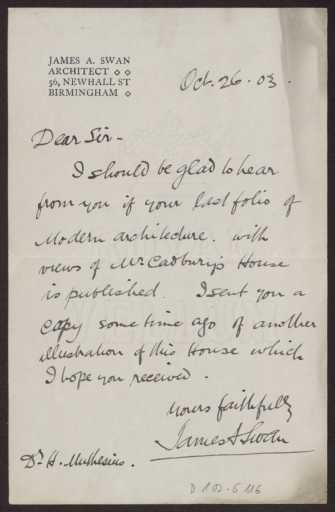 JAMES A. SWAN
ARCHITECT
56, NEWHALL ST
BIRMINGHAM
Oct. 26. 03.
Dear Sir -
I should be glad to hear
from you if your last folio of
Modern architecture. with
views of Mr Cadbury's House
is published. I sent you a
copy some time ago of another
illustration of this House which
I hope you received.
Yours faithfully
James A Swan
Dr. H. Muthesius.
D 102-6116